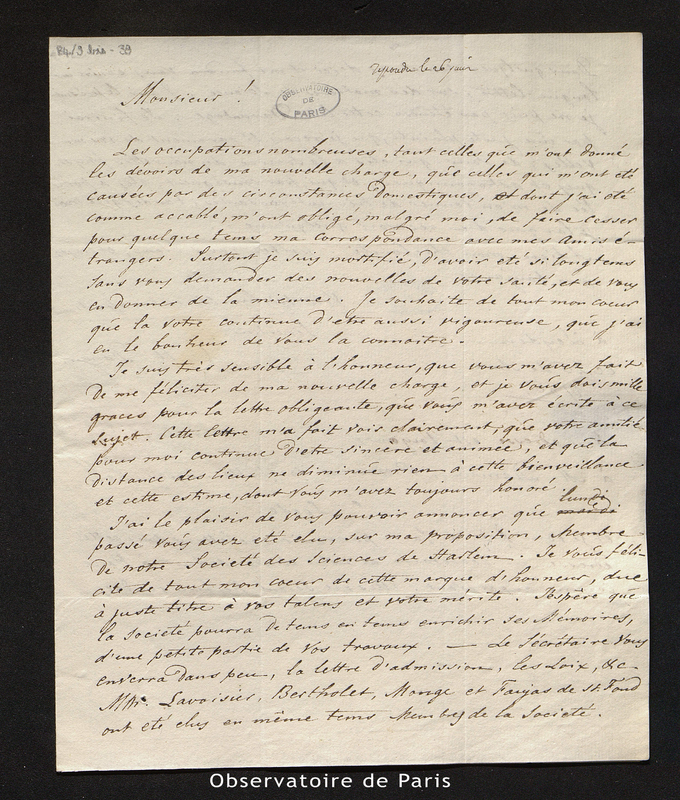 repondu le 26 juin
Monsieur !
OBSERVATOIRE
DE
PARIS
Les occupations nombreuses, tant celles que m'ont donné
les dévoirs de ma nouvelle charge, que celles qui m'ont été
causées par des circonstances domestiques, et dont j'ai été
comme accablé, m'ont obligé, malgré moi, de faire cesser
pour quelque tems ma correspondance avec mes Amis é-
trangers. Surtout je suis mortifié, d'avoir eté si longtems
sans vous demander des nouvelles de votre santé, et de vous
en donner de la mienne. Je souhaite de tout mon coeur
que la votre continue d'etre aussi vigoureuse, que j'ai
eu le bonheur de vous la connaitre.
Je suis très sensible à l'honneur, que vous m'avez fait
de me féliciter de ma nouvelle charge, et je vous dois mille
graces pour la lettre obligeante, que vous m'avez écrite à ce
sujet. Cette lettre m'a fait voir clairement, que votre amitié
pour moi continue d'etre sincere et animée, et que la
distance des lieux ne diminue rien à cette bienveillance
et cette estime, dont vous m'avez toujours honoré.
J'ai le plaisir de vous pouvoir annoncer que mardi lundi
passé vous avez eté élu, sur ma proposition, Membre
de notre Societé des Sciences de Harlem. Je vous féli-
cite de tout mon coeur de cette marque d'honneur, due
à juste titre à vos talens et votre mérite. J'espère que
la Societé pourra de tems en tems enrichir ses Mémoires,
d'une petite partie de vos travaux. — Le Sécrétaire vous
enverra dans peu, la lettre d'admission, les Loix, &c
MM. Lavoisier, Bertholet, Monge et Faujas de St. Fond
ont eté elus en même tems Membres de la Societé.
Observatoire de Paris